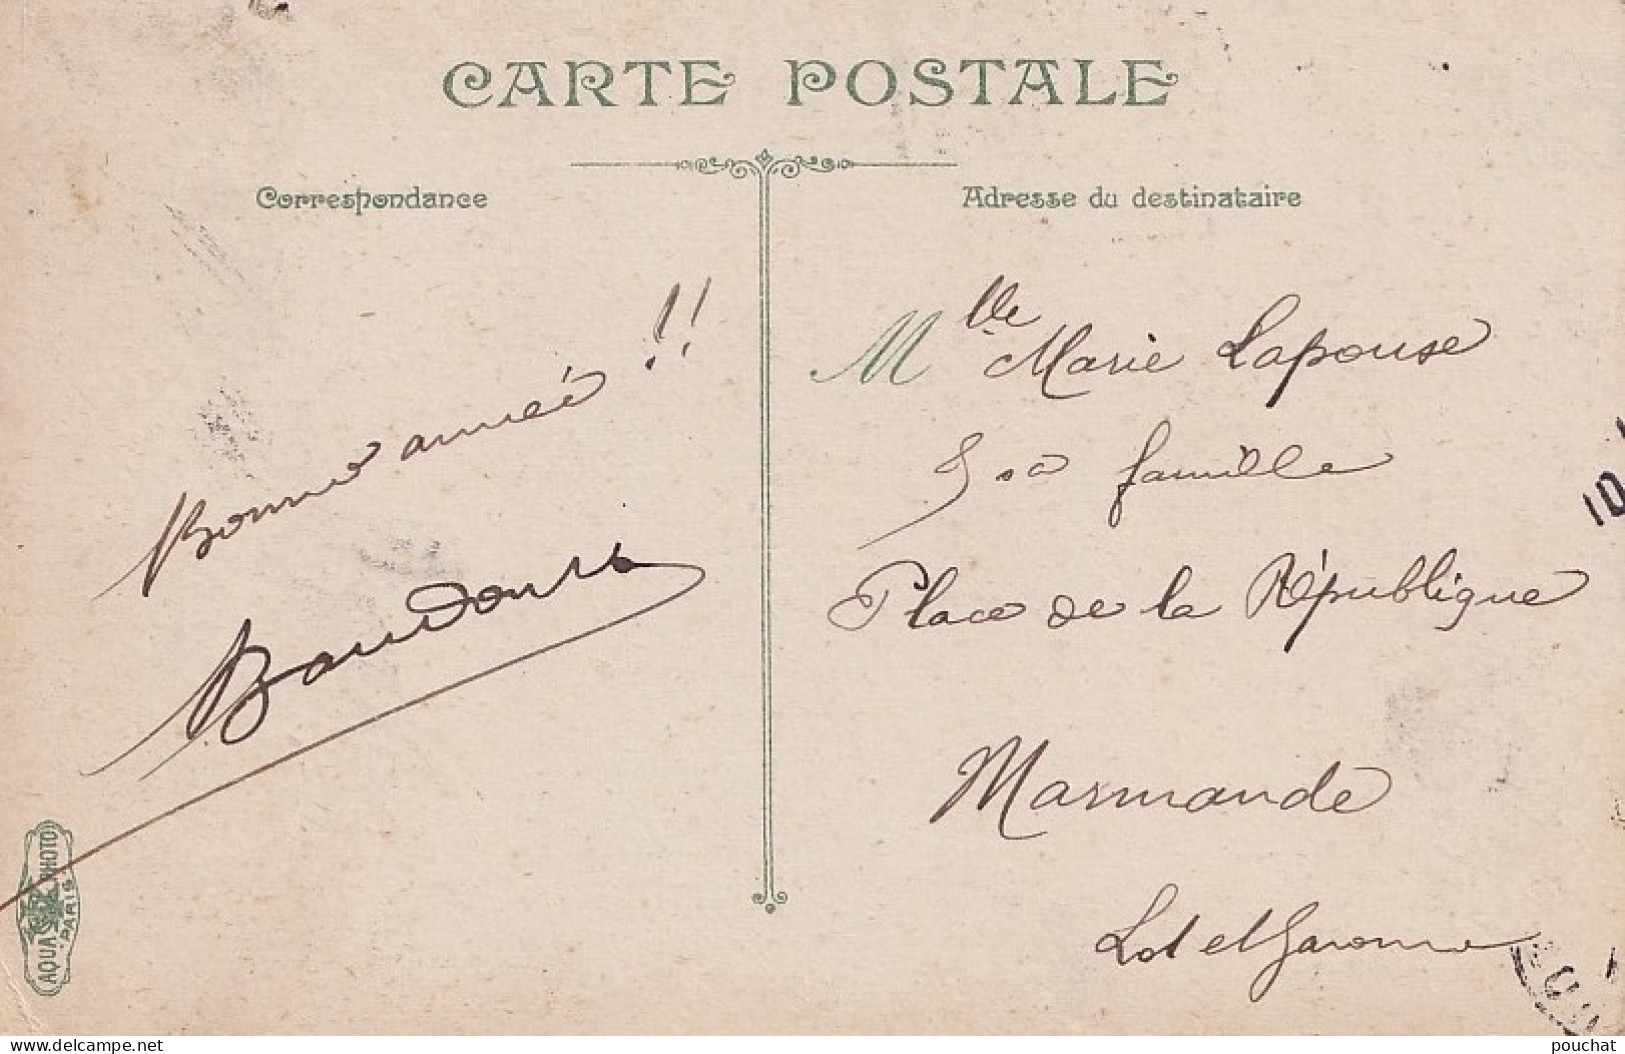 CARTE POSTALE
Correspondance
Bonne année !!
Baudours
AQUA PHOTO
PARIS
Adresse du destinataire
Mlle Marie Lapouse
& sa famille
Place de la République
Marmande
Lot et Garonne
10
pouchat
delcampe.net